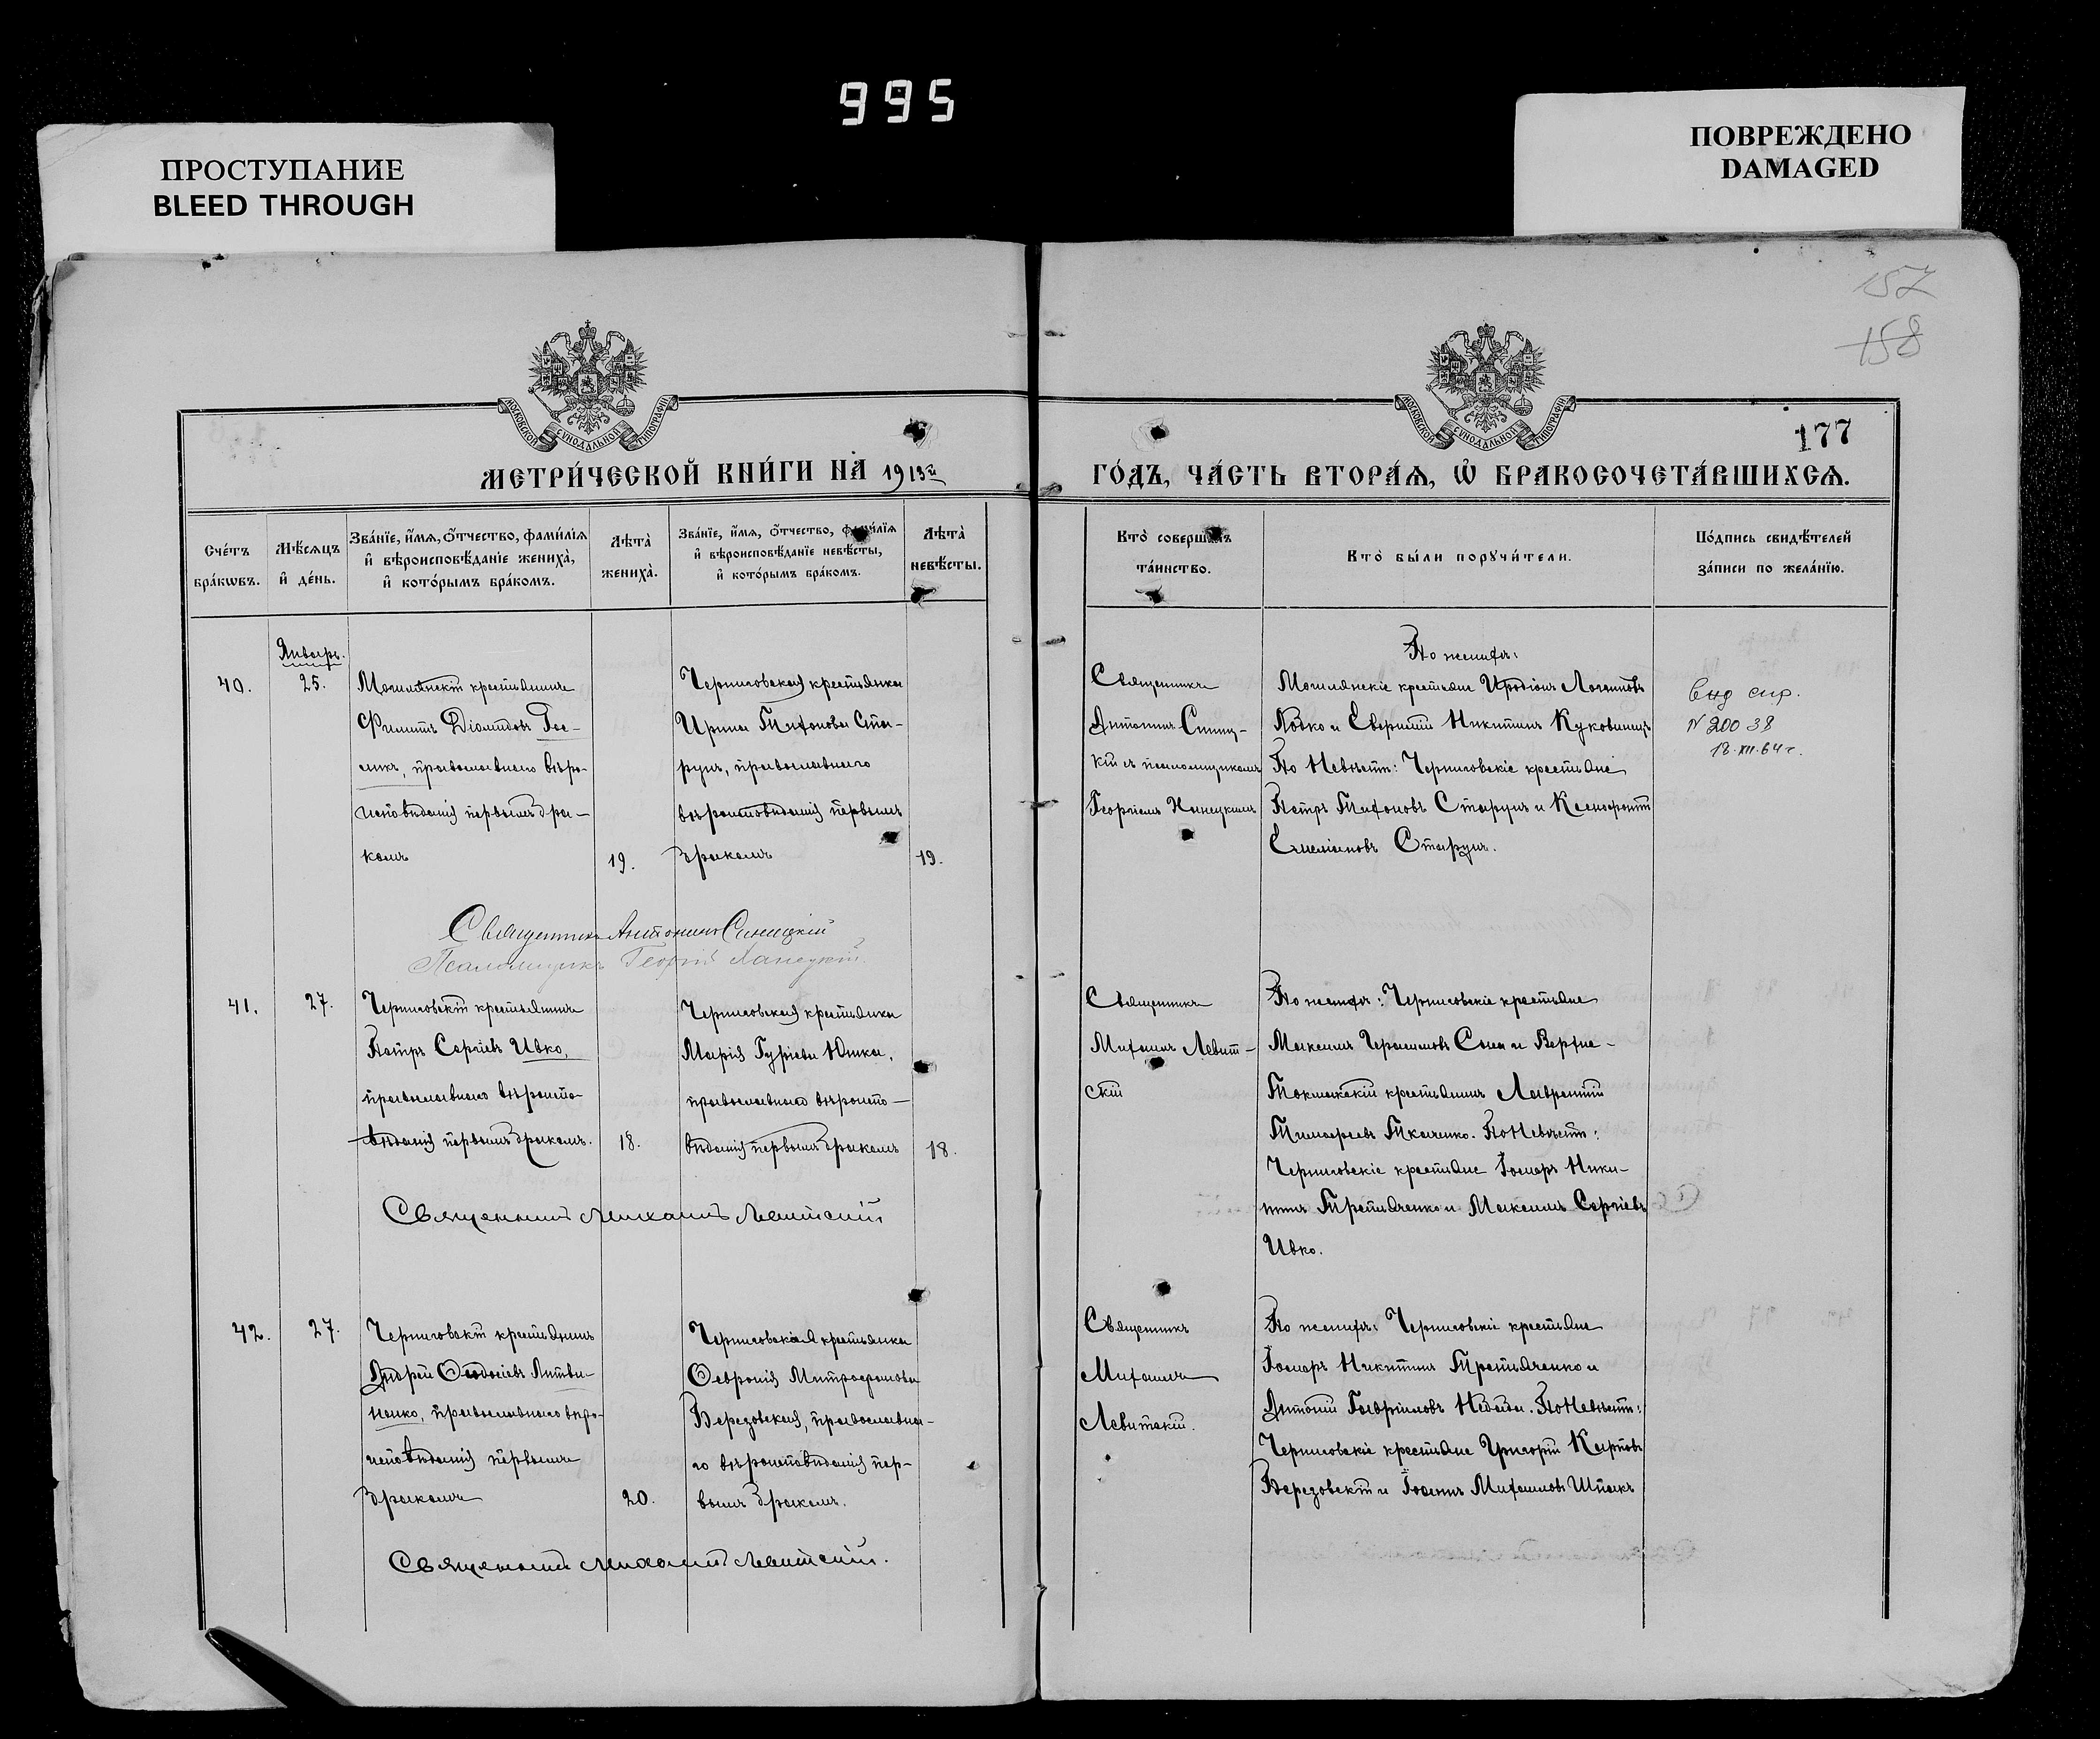 995
ПРОСТУПАНИЕ
BLEED THROUGH
ПОВРЕЖДЕНО
DAMAGED
157
158
177
МОСКОВСКОЙ СУНОДАЛЬНОЙ ТИПОГРАФІИ
МОСКОВСКОЙ СУНОДАЛЬНОЙ ТИПОГРАФІИ
МЕТРИ́ЧЕСКОЙ КНИ́ГИ НА 1913й
ГО́ДЪ, ЧА́СТЬ ВТОРА́Ѧ, Ѽ БРАКОСОЧЕТА́ВШИХСѦ.
Сче́тъ
бра́кѡвъ.
Мѣ́сѧцъ
и҆ де́нь.
Зва́нїе, и҆́мѧ, о҆́тчество, фами́лїѧ
и҆ вѣроисповѣ́данїе жениха̀,
и҆ кото́рымъ бра́комъ.
Лѣта̀
жениха̀.
Зва́нїе, и҆́мѧ, о҆́тчество, фами́лїѧ
и҆ вѣроисповѣ́данїе невѣ́сты,
и҆ кото́рымъ бра́комъ.
Лѣта̀
невѣ́сты.
Кто̀ соверша́лъ
та́инство.
Кто̀ бы́ли порꙋчи́тели.
По́дпись свидѣ́телей
за́писи по жела́нїю.
Январь.
40.
25.
Могилянскій крестьянинъ
Филиппъ Діомидовъ
православнаго вѣро-
исповѣданія первымъ бра-
комъ
19.
Черниговская крестьянка
Ирина Тихонова Ста-
рунъ, православнаго
вѣроисповѣданія первымъ
бракомъ
19.
Священникъ
Антонинъ Синиц-
кій съ псаломщикомъ
Георгіемъ
По женихѣ:
Могилянскіе крестьяне Иродіонъ Логгиновъ
и Никитинъ
По Невѣстѣ: Черниговскіе крестьяне
Петръ Тихоновъ Старунъ и Ксенофонтъ
Емеліановъ Старунъ.
N 20038
18.XII.64г.
Священникъ Антонинъ Синицкій
Псаломщикъ Георгій
41.
27.
Черниговскій крестьянинъ
Петръ Сергіевъ Ивко,
православнаго вѣроиспо-
вѣданія первымъ бракомъ.
18.
Черниговская крестьянка
Марія Гуріева Юшка,
православнаго вѣроиспо-
вѣданія первымъ бракомъ
18.
Священникъ
Михаилъ Левит-
скій
По женихѣ: Черниговскіе крестьяне
Максимъ Герасимовъ и Верхне-
Токмакскій крестьянинъ Лаврентій
Тимофеевъ Ткаченко. По Невѣстѣ:
Черниговскіе крестьяне Ники-
тинъ Третьяченко и Максимъ Сергіевъ
Ивко.
Священникъ Михаилъ Левитскій
42.
27.
Черниговскій крестьянинъ
Андрей Ѳеодосіевъ Литви-
ненко, православнаго вѣро-
исповѣданія первымъ
бракомъ
20.
Черниговская крестьянка
Ѳевронія Митрофанова
Березовская, православна-
го вѣроисповѣданія пер-
вымъ бракомъ.
Священникъ
Михаилъ
Левитскій.
По женихѣ: Черниговскіе крестьяне
Никитинъ Третьяченко и
Антоній Гавріиловъ По Невѣстѣ:
Черниговскіе крестьяне Григорій Карповъ
Березовскій и Іоаннъ Михаиловъ Шпакъ
Священникъ Михаилъ Левитскій.